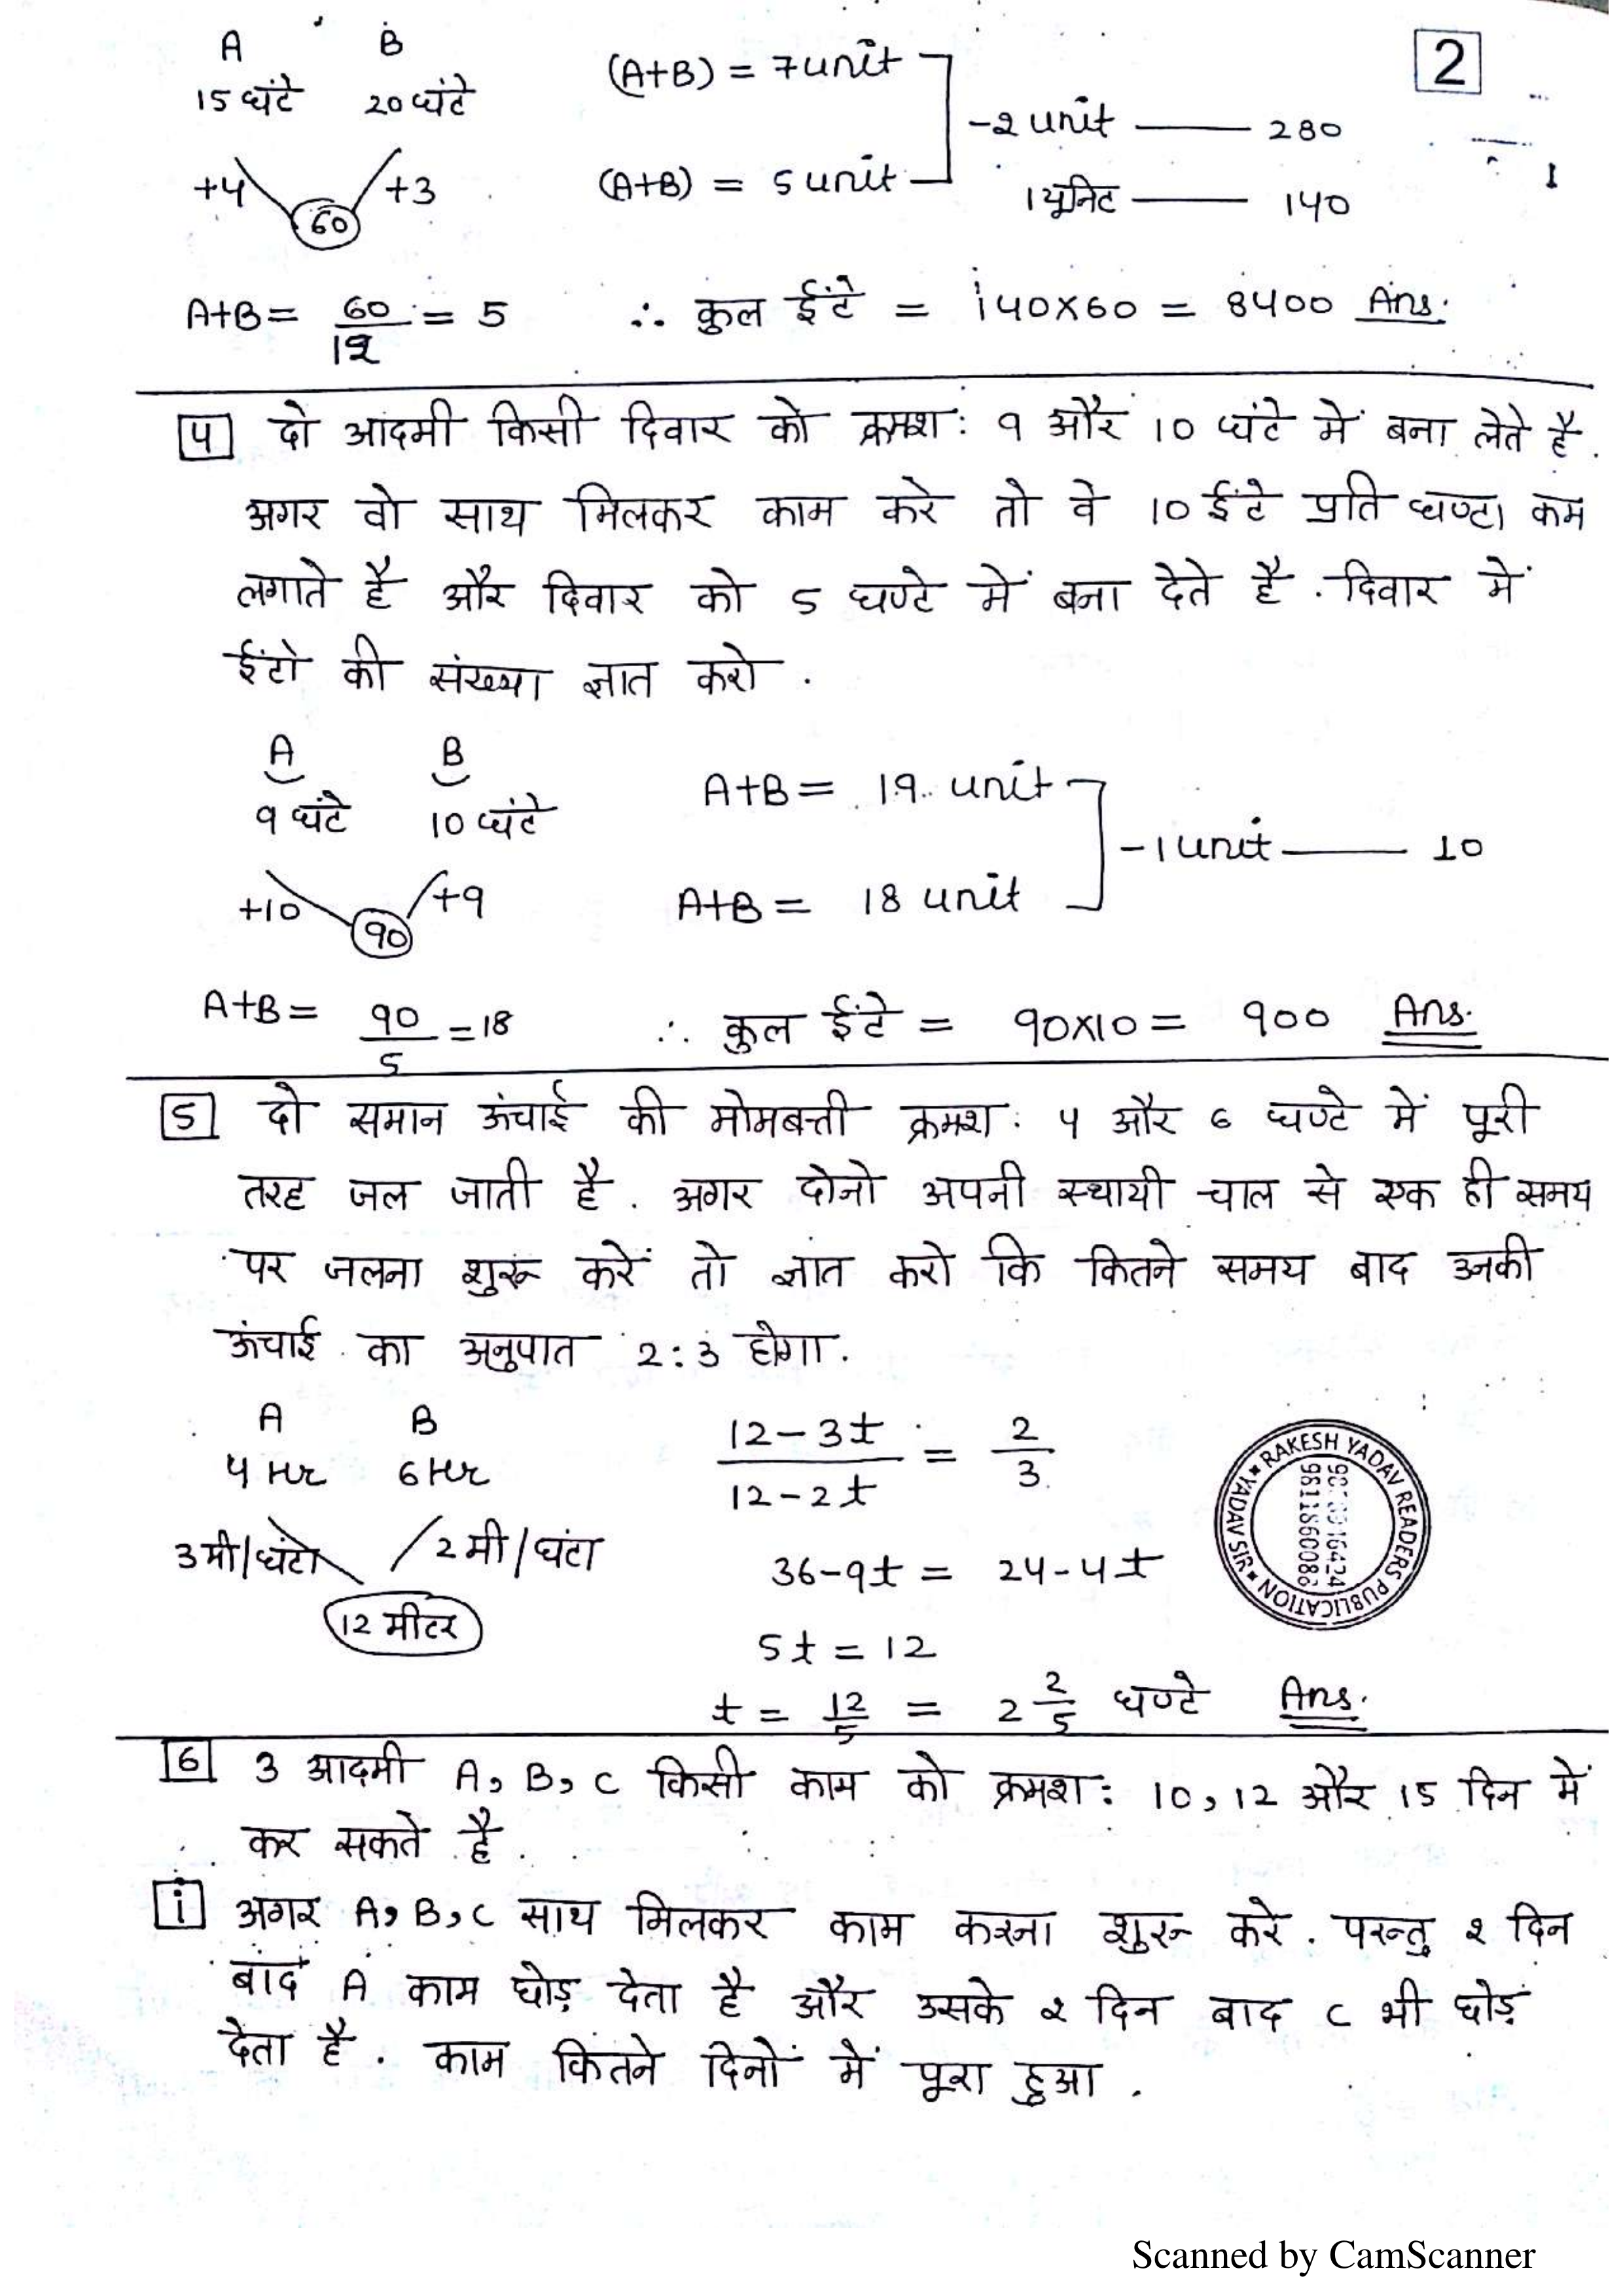 2
A B
15 घंटे 20 घंटे (A+B) = 7 unit
-2 unit — 280
+4 60 +3 (A+B) = 5 unit
1 यूनिट — 140
A+B = 60/12 = 5 ∴ कुल ईंटे = 140×60 = 8400 Ans.
4 दो आदमी किसी दिवार को क्रमश: 9 और 10 घंटे में बना लेते है.
अगर वो साथ मिलकर काम करे तो वे 10 ईंटे प्रति घण्टा कम
लगाते है और दिवार को 5 घण्टे में बना देते है. दिवार में
ईंटो की संख्या ज्ञात करो.
A B
9 घंटे 10 घंटे A+B = 19 unit
-1 unit — 10
+10 90 +9 A+B = 18 unit
A+B = 90/5 = 18 ∴ कुल ईंटे = 90×10 = 900 Ans.
5 दो समान ऊंचाई की मोमबत्ती क्रमश: 4 और 6 घण्टे में पूरी
तरह जल जाती है. अगर दोनो अपनी स्थायी चाल से एक ही समय
पर जलना शुरू करें तो ज्ञात करो कि कितने समय बाद उनकी
ऊंचाई का अनुपात 2:3 होगा.
A B
4 Hr 6 Hr 12-3t/12-2t = 2/3
3 मी/घंटा 2 मी/घंटा 36-9t = 24-4t
12 मीटर
5t = 12
t = 12/5 = 2 2/5 घण्टे Ans.
RAKESH YADAV READERS PUBLICATION
9811860086
6 3 आदमी A, B, C किसी काम को क्रमश: 10, 12 और 15 दिन में
कर सकते है.
i अगर A, B, C साथ मिलकर काम करना शुरू करे. परन्तु 2 दिन
बाद A काम छोड़ देता है और उसके 2 दिन बाद C भी छोड़
देता है. काम कितने दिनों में पूरा हुआ.
Scanned by CamScanner